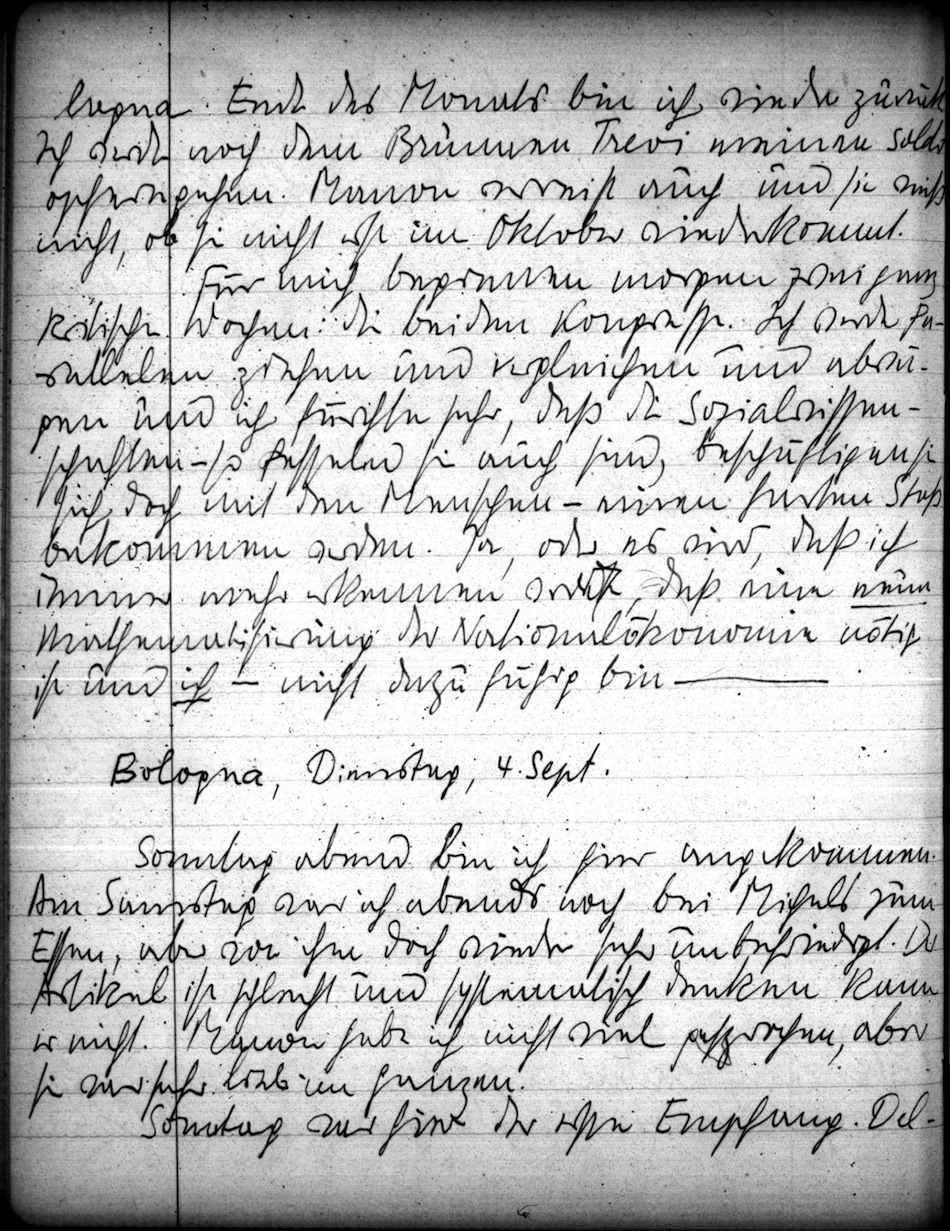 logna. Ende des Monats bin ich wieder zurück
Ich werde noch dem Brunnen Trevi meinen Soldo
opfern gehen. Manon verreist auch und sie weiß
nicht, ob sie nicht erst im Oktober wiederkommt.
Für mich beginnen morgen zwei ganz
kritische Wochen: die beiden Kongresse. Ich werde Pa-
rallelen ziehen und vergleichen und abwä-
gen und ich fürchte sehr, daß die Sozialwissen-
schaften – so fesselnd sie auch sind, beschäftigen sie
sich doch mit den Menschen – einen harten Stoß
bekommen werden. Ja, oder es wird, daß ich
immer mehr erkennen werde, daß eine neue
Mathematisierung der Nationalökonomie nötig
ist und ich – nicht dazu fähig bin ———
Bologna, Dienstag, 4. Sept.
Sonntag abend bin ich hier angekommen.
Am Samstag war ich abends noch bei Michels zum
Essen, aber von ihm doch wieder sehr unbefriedigt. Der
Artikel ist schlecht und systematisch denken kann
er nicht. Manon habe ich nicht viel gesprochen, aber
sie war sehr lieb im ganzen.
Sonntag war hier der erste Empfang. Del-